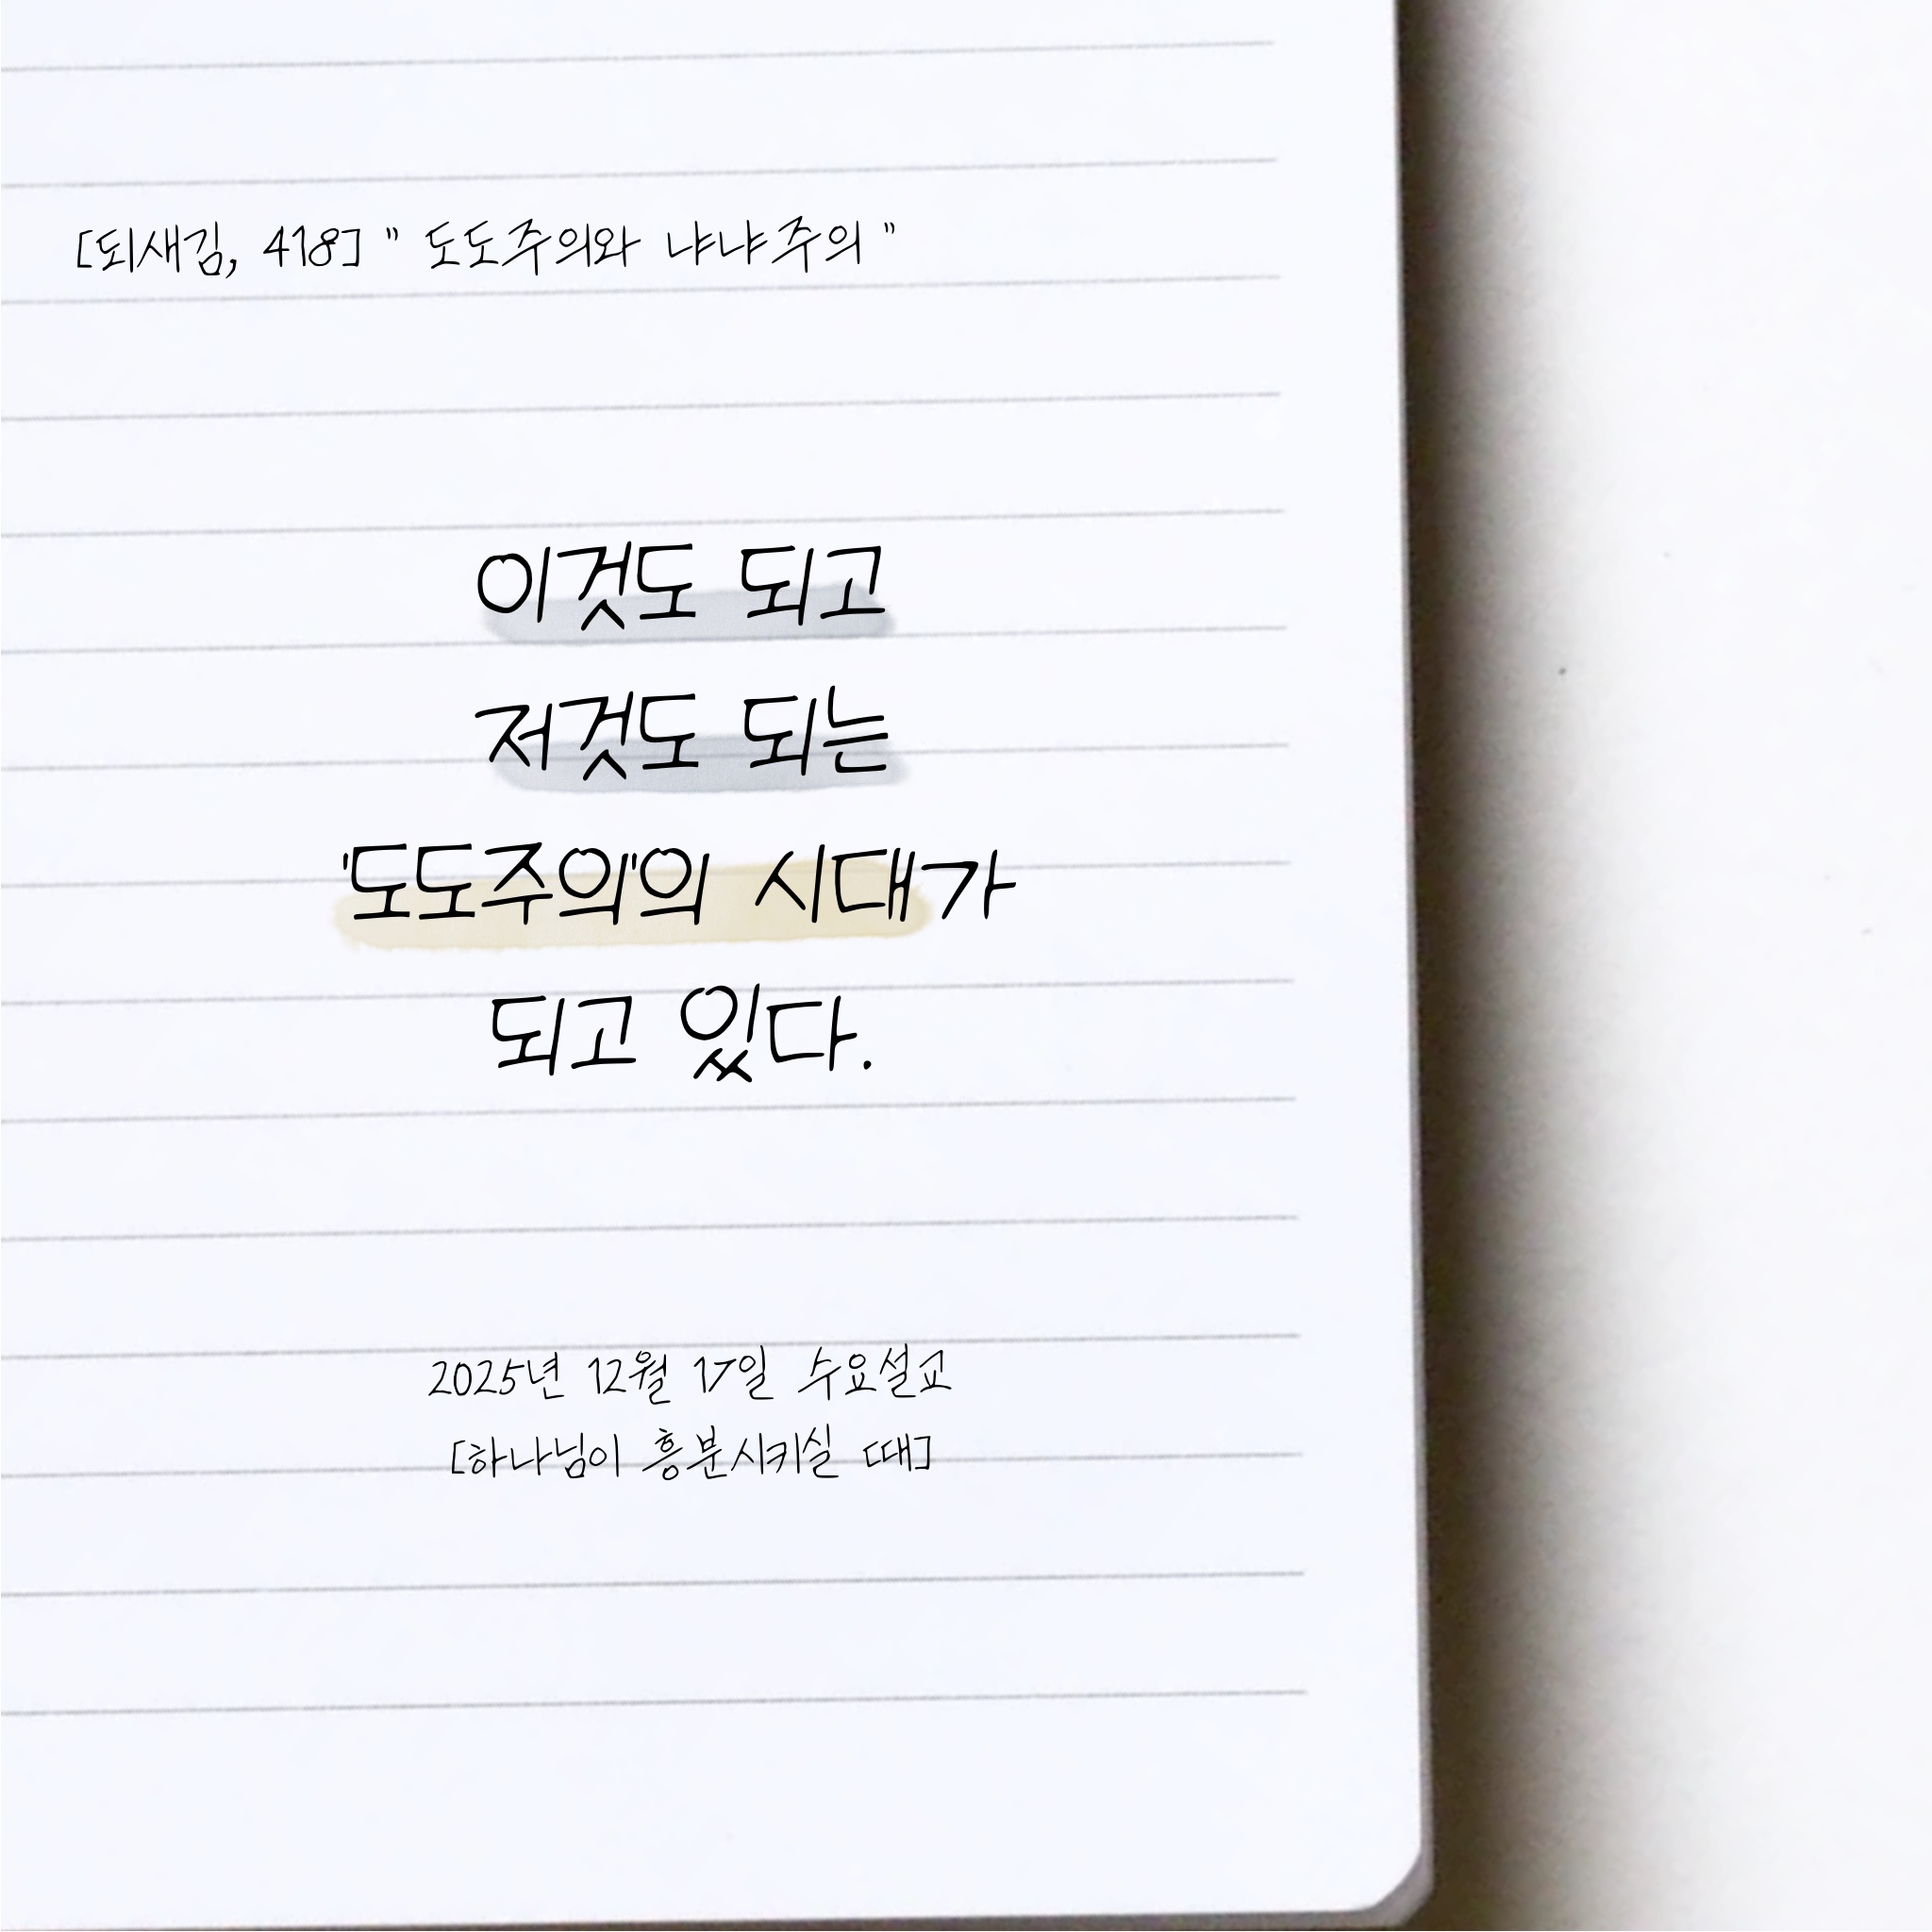 [되새김, 418] " 도도주의와 냐냐주의 "
이것도 되고
저것도 되는
'도도주의'의 시대가
되고 있다.
2025년 12월 17일 수요설교
[하나님이 흥분시키실 때]